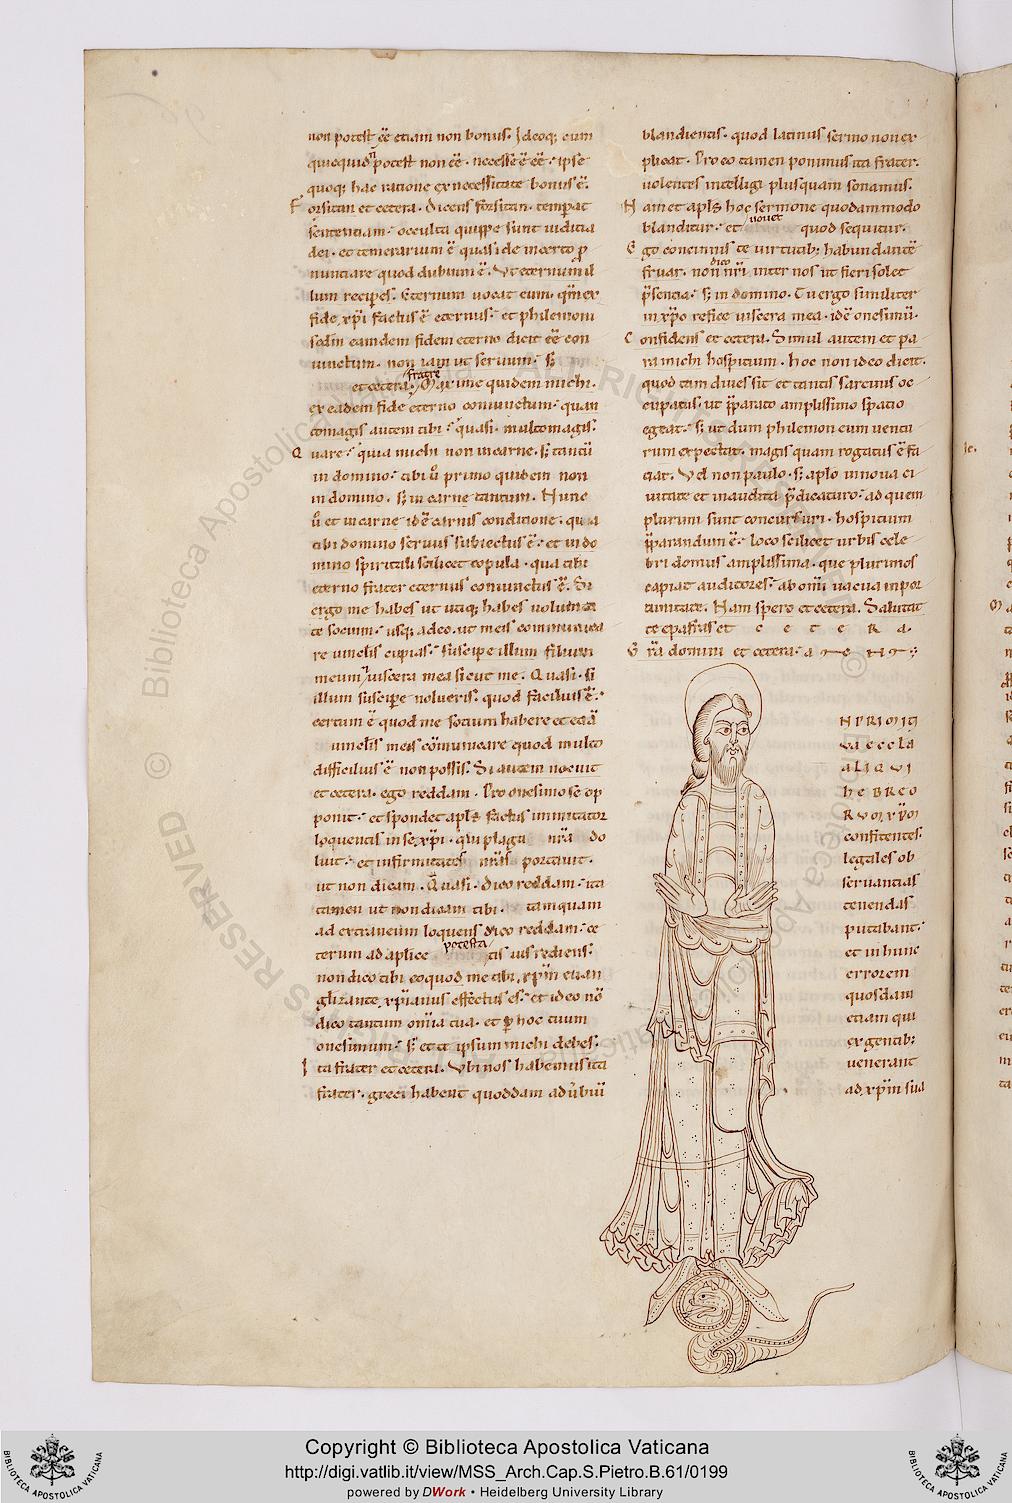 non potest ēē etiam non bonus. Ideoq; cum
quicquid potest non ēē. necesse ē ēē. ipse
quoq; hac ratione ex necessitate bonus ē.
Forsitan et cetera. Dicens forsitan. temperat
sententiam. occulta quippe sunt iuditia
dei. et temerarium ē quasi de incerto p
nuntiare quod dubium ē. Ut eternum il
lum recipes. Eternum uocat eum.
fide xp̄i factus ē eternus. et philemoni
secundum eamdem fidem eterno dicit ēē con
iunctum. non iam ut seruum. s;
fratre
et cetera. Maxime quidem michi.
ex eadem fide eterno coniunctum. quan
tomagis autem tibi. quasi. multomagis.
Quare. quia michi non in carne. s; tantū
in domino. tibi u̓ primo quidem non
in domino. s; in carne tantum. Nunc
u̓ et in carne idē carnis conditione. quia
tibi domino seruus subiectus ē. et in do
mino spiritali scilicet copula. qua tibi
eterno frater eternus coniunctus ē. Si
ergo me habes ut utiq; habes uoluntate
te socium. usq; adeo. ut meis communica
re uinclis cupias. suscipe illum filium
meum uiscera mea sicut me. Quasi. si
illum suscipe nolueris. quod facilius ē.
certum ē quod me socium habere et eadē
uinclis meis cōmunicare quod multo
difficilius ē non possis. Si autem nocuit
et cetera. ego reddam. Pro onesimo se op
ponit. et spondet apls̄ factus immitator
loquentis in se xp̄i. qui plaga nr̄a do
luit. et infirmitates nr̄as portauit.
ut non dicam. Quasi. dico reddam. ita
tamen ut non dicam tibi. tamquam
ad extraneum loquens dico reddam. ce
potesta
terum ad aplice tis uis rediens.
non dico tibi eo quod me tibi xp̄m euan
glizante xp̄ianus effectus es. et ideo nō
dico tantum om̄ia tua. et p hoc tuum
onesimum. s; et te ipsum michi debes.
Ita frater et cetera. Ubi nos habemus ita
frater. greci habent quoddam aduerbiū
blandientis. quod latinus sermo non ex
plicat. Pro eo tamen ponimus ita frater.
uolentes intelligi plusquam sonamus.
Nam et apls̄ hoc sermone quodammodo
nouet
blanditur. et quod sequitur.
Ego concinnis te uirtutib; habundantē
dico
fruar. non nr̄i inter nos ut fieri solet
p̄sentia. s; in domino. Tu ergo similiter
in xp̄o refice uiscera mea. idē onesimū.
Confidens et cetera. Simul autem et pa
ra michi hospitium. hoc non ideo dicit.
quod tam diues sit et tantis sarcinis oc
cupatus. ut p̄parato amplissimo spatio
egeat. s; ut dum philemon eum uentu
rum expectat. magis quam rogatus ē fa
ciat. Vel non paulo. s; aplo in noua ci
uitate et inaudita p̄dicaturo. ad quem
plurimi sunt concursuri. hospitium
p̄parandum ē. loco scilicet urbis cele
bri domus amplissima. que plurimos
capiat auditores. ab om̄i uacua inpor
tunitate. Nam spero et cetera. Salutat
te epafras et C E T E R A.
Gr̄a domini et cetera. a M E N T.
N PRIMITI
va eccla
aliqui
heBReo
RUM xp̄m
confitentes.
legales ob
seruantias
tenendas
putabant.
et in hunc
errorem
quosdam
etiam qui
ex gentib;
uenerant
ad xp̄m sua
Copyright © Biblioteca Apostolica Vaticana
http://digi.vatlib.it/view/MSS_Arch.Cap.S.Pietro.B.61/0199
powered by DWork • Heidelberg University Library